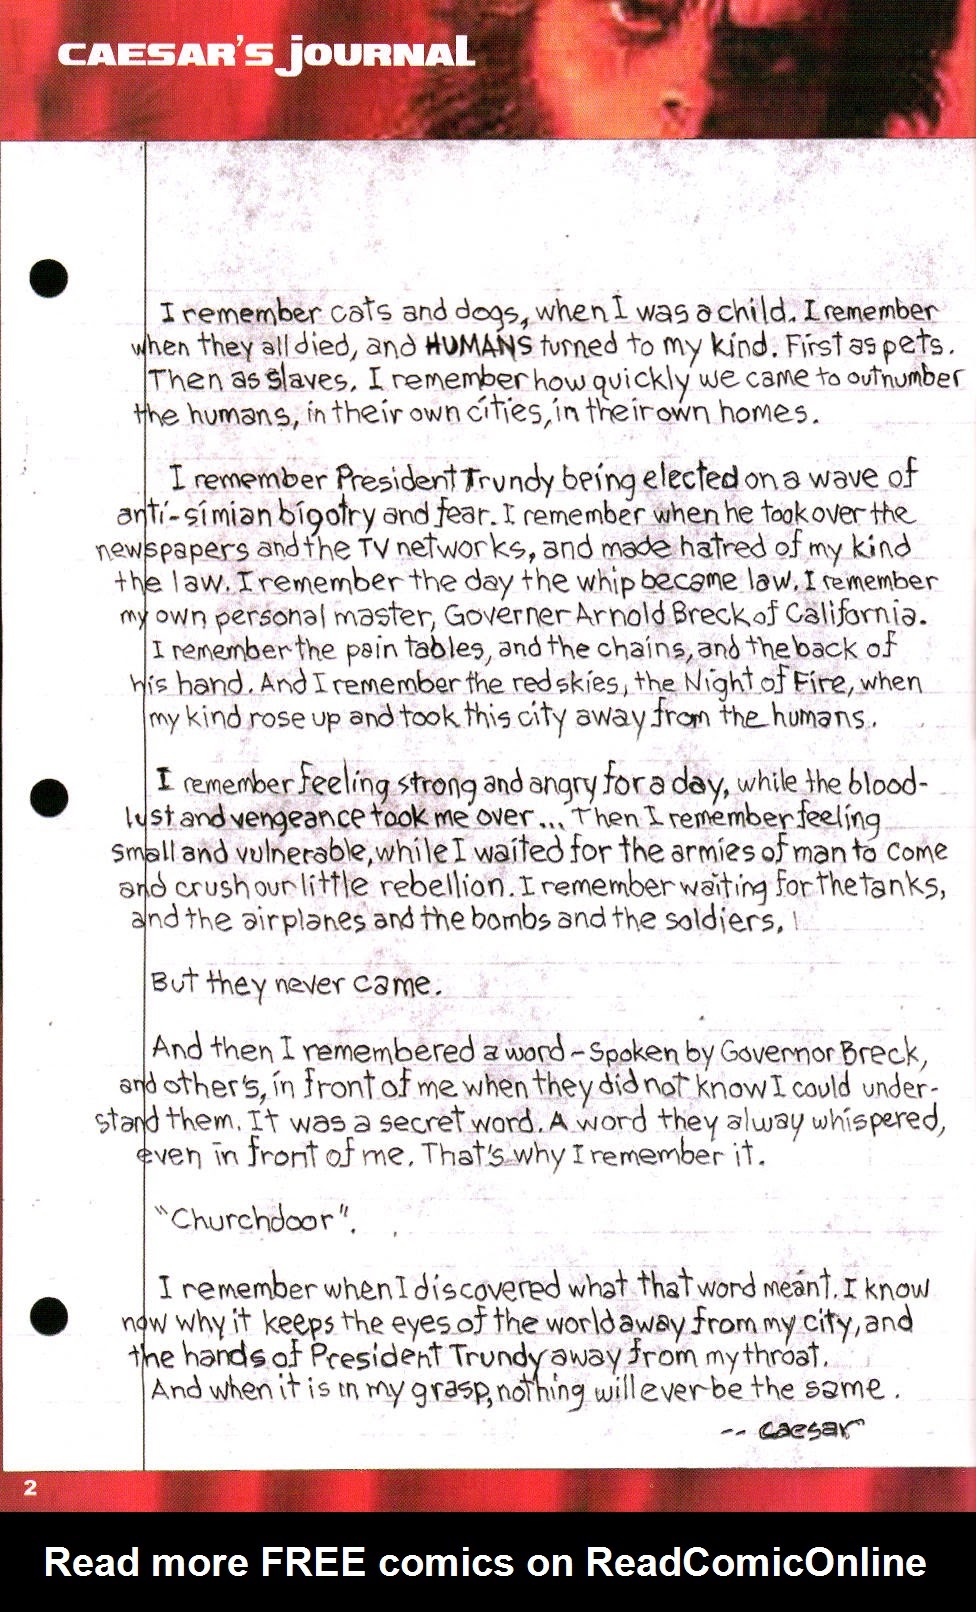 CAESAR'S JOURNAL
I remember cats and dogs, when I was a child. I remember
when they all died, and HUMANS turned to my kind. First as pets.
Then as slaves. I remember how quickly we came to outnumber
the humans, in their own cities, in their own homes.
I remember President Trundy being elected on a wave of
anti-simian bigotry and fear. I remember when he took over the
newspapers and the TV networks, and made hatred of my kind
the law. I remember the day the whip became law. I remember
my own personal master, Governer Arnold Breck of California.
I remember the pain tables, and the chains, and the back of
his hand. And I remember the red skies, the Night of Fire, when
my kind rose up and took this city away from the humans.
I remember feeling strong and angry for a day, while the blood-
lust and vengeance took me over... Then I remember feeling
small and vulnerable, while I waited for the armies of man to come
and crush our little rebellion. I remember waiting for the tanks,
and the airplanes and the bombs and the soldiers.
But they never came.
And then I remembered a word - Spoken by Governor Breck,
and other's, in front of me when they did not know I could under-
stand them. It was a secret word. A word they alway whispered,
even in front of me. That's why I remember it.
"Churchdoor".
I remember when I discovered what that word meant. I know
now why it keeps the eyes of the world away from my city, and
the hands of President Trundy away from my throat.
And when it is in my grasp, nothing will ever be the same.
-- Caesar
2
Read more FREE comics on ReadComicOnline